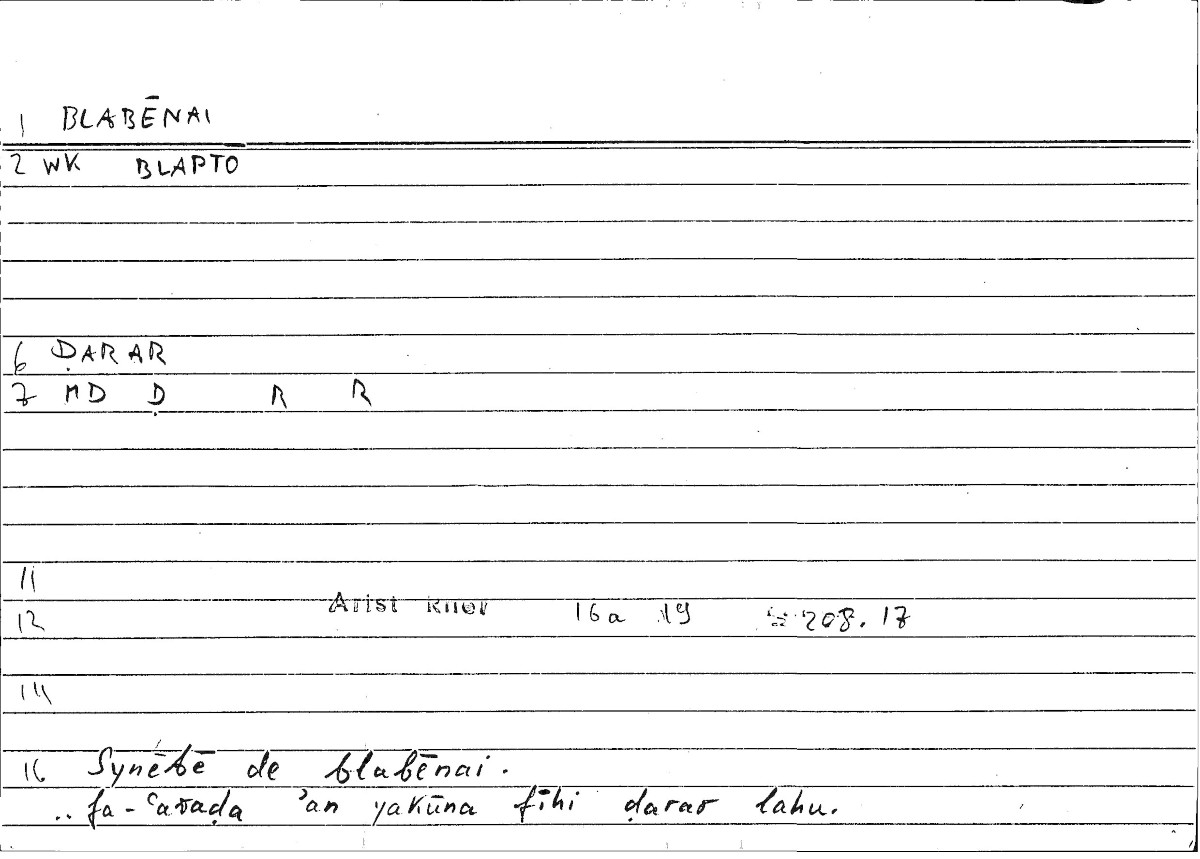 1 BLABĒNAI
2 WK BLAPTO
6 ḌARAR
7 MD Ḍ R R
11
12 Arist Rhet 16a 19 208.17
14
16 Synébē de blabēnai.
.. fa-ʿaraḍa ʾan yakūna fīhi ḍarar lahu.